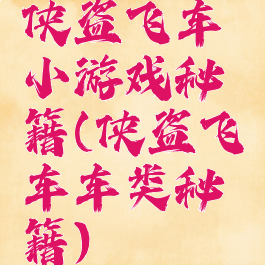 侠盗飞车
小游戏秘
籍(侠盗飞
车车类秘
籍)